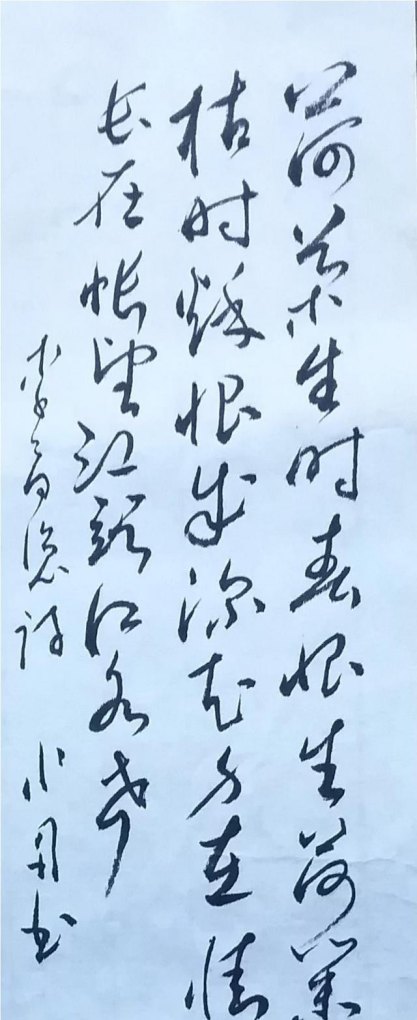 荷葉生时春恨生荷葉
枯时秋恨成深知身在情
长在怅望江头江水声
李商隐诗 小月书